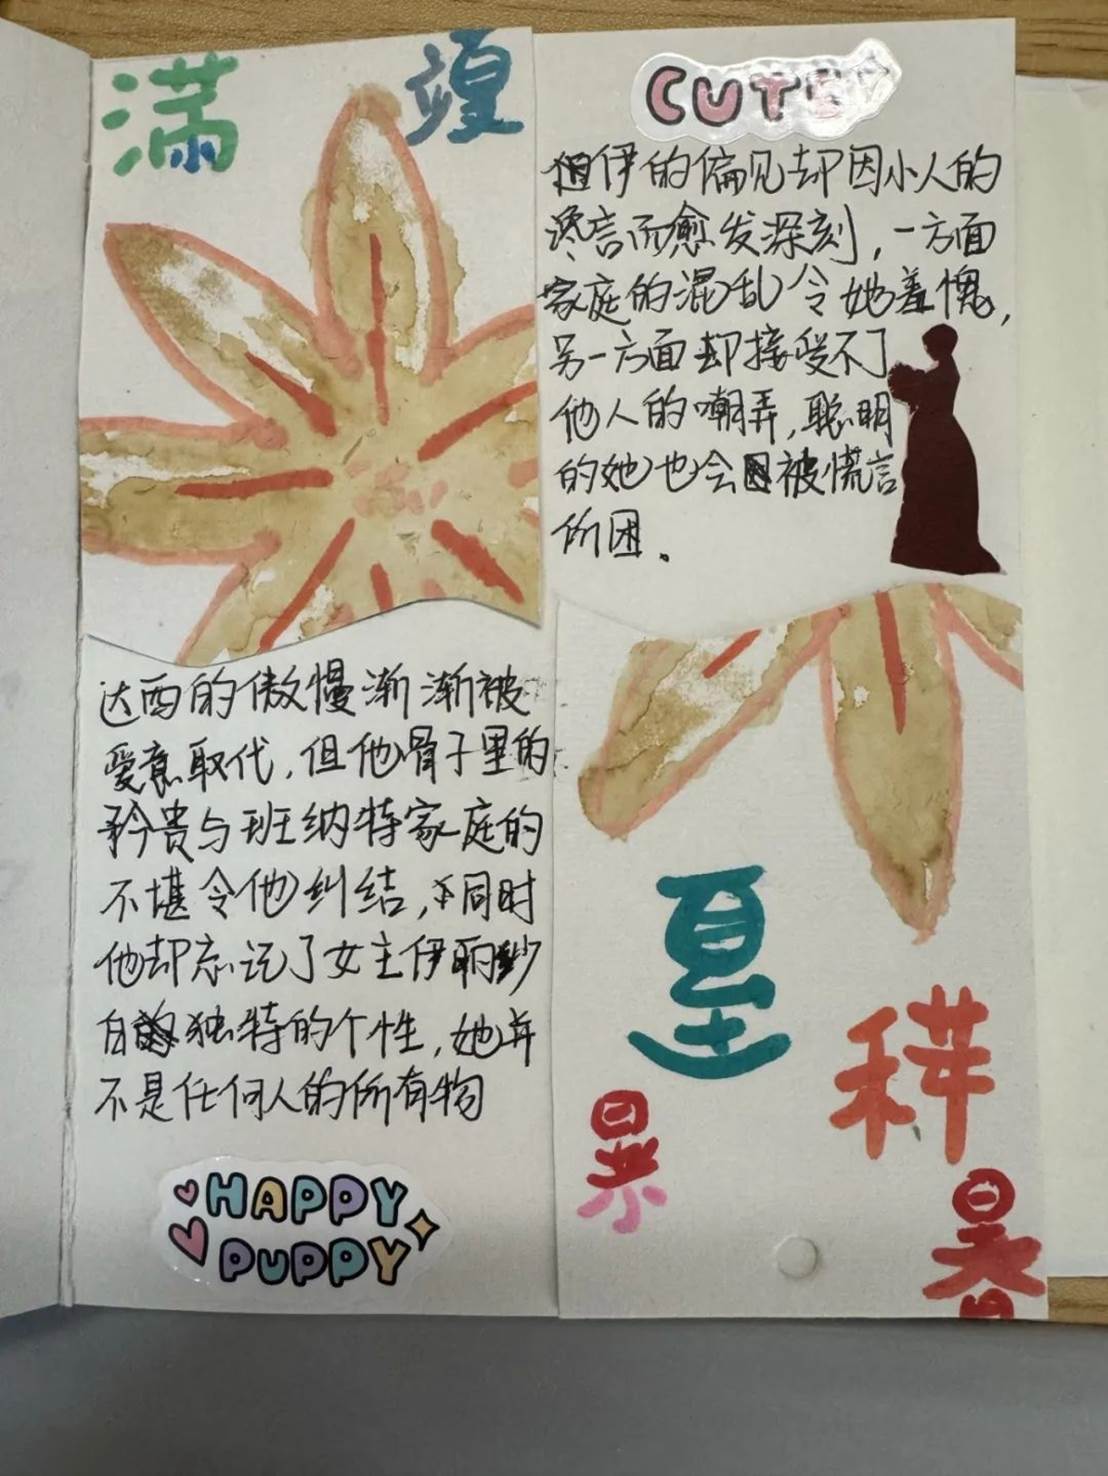 满
CUTE
但伊的偏见却因小人的
谗言而愈发深刻，一方面
家庭的混乱令她羞愧，
另一方面却接受不了
他人的嘲弄，聪明
的她也会被慌言
所困。
达西的傲慢渐渐被
爱意取代，但他骨子里的
矜贵与班纳特家庭的
不堪令他纠结，同时
他却忘记了女主伊丽纱
白独特的个性，她并
不是任何人的所有物
HAPPY
PUPPY